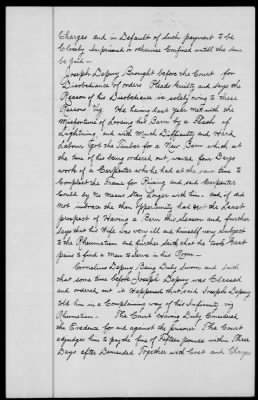 Charges and in Default of such payment to be
Closely Imprisoned or otherwise Confined untill the same
be paid —
Joseph Depuy Brought before the Court for
Disobedience of orders Pleads Guilty and says the
Reason of his Disobedience is solely owing to these
Reasons Viz. He having last Year Met with the
Misfortune of Loosing his Barn by a Flash of
Lightning, and with Much Difficulty and Hard
Labour Got the Timber for a New Barn which at
the time of his being ordered out, wanted four Days
work of a Carpenter who he had at the same time to
Compleat the Frame for Raising and said Carpenter
Could by No Means Stay Longer with him and if did
not imbrace the then Opportunity had lost the Least
prospect of Having a Barn this Season and further
says that his Wife was very ill and himself very Subject
to the Rheumatism and further saith that he took Great
pains to find a Man to Serve in his Room —
Cornelius Depuy Being Duly Sworn and saith
that some time before Joseph Depuy was Classed
and ordered out it Happened that said Joseph Depuy
told him in a Complaining way of his Infirmity viz
Rheumatism — The Court Having Duly Considered
the Evidence for and against the prisoner The Court
adjudges him to pay the fine of Fifteen pounds within Three
Days after Demanded Together with Cost and Charges